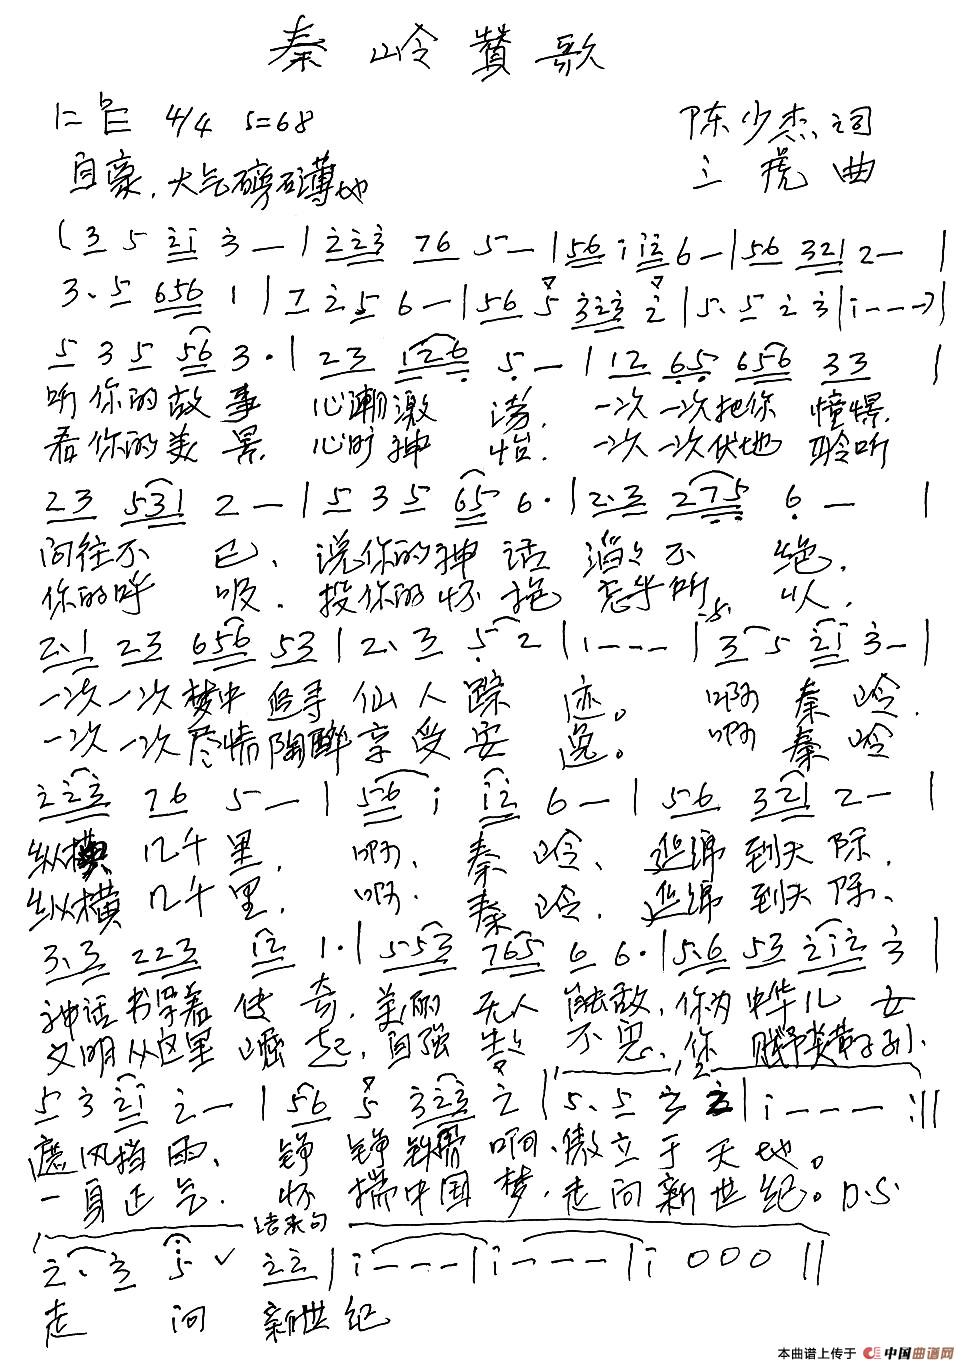 秦岭赞歌
1=♭E 4/4 ♩=68
陈少杰词
自豪、大气磅礴地
三虎曲
(3 5 2̇1̇ 3̇ — | 2̇2̇3̇ 76 5 — | 56 1̇ 1̇2̇ 6 — | 56 321 2 — |
3. 5 656 1 | 7 2̇ 5 6 — | 56 5 3̇2̇3̇ 2̇ | 5. 5 2̇ 3̇ | 1̇ — — —) |
5 3 5 56 3 · | 23 126 5 — | 12 65 656 33 |
听你的故事 心潮激荡. 一次一次把你 憧憬.
看你的美景. 心旷神怡. 一次一次伏地 聆听
23 531 2 — | 5 3 5 65 6 · | 2.3 275 6 — |
向往不已、说你的神话 滔々不绝.
你的呼吸. 投你的怀抱 怎乎所以.
2.1 23 656 53 | 2. 3 5 2 | 1 — — — | 3 5 2̇1̇ 3̇ — |
一次一次梦中追寻仙人踪迹。 啊 秦岭.
一次一次尽情陶醉享受安逸。 啊 秦岭
2̇2̇3̇ 76 5 — | 56 1̇ 1̇2̇ 6 — | 56 321 2 — |
纵横 几千里. 啊. 秦岭、延绵到天际.
纵横几千里. 啊. 秦岭. 延绵到天际、
3.3 223 12 1 · | 553 765 6 6 · | 5.6 53 2̇1̇2̇ 3̇ |
神话书写着传奇.美丽无人能敌.你为中华儿女
文明从这里崛起.自强 不息.你 赋予炎黄子孙.
5 3 2̇1̇ 2̇ — | 56 5 3̇2̇3̇ 2̇ | 5. 5 3̇ 2̇ | 1̇ — — — :||
遮风挡雨、铮铮铁骨啊、傲立于天地。
一身正气. 怀揣中国梦.走向新世纪。D.S.
结束句
2̇. 3̇ 5̇ ∨ 2̇2̇ | 1̇ — — — | 1̇ — — — | 1̇ 0 0 0 ||
走向 新世纪
本曲谱上传于 中国曲谱网